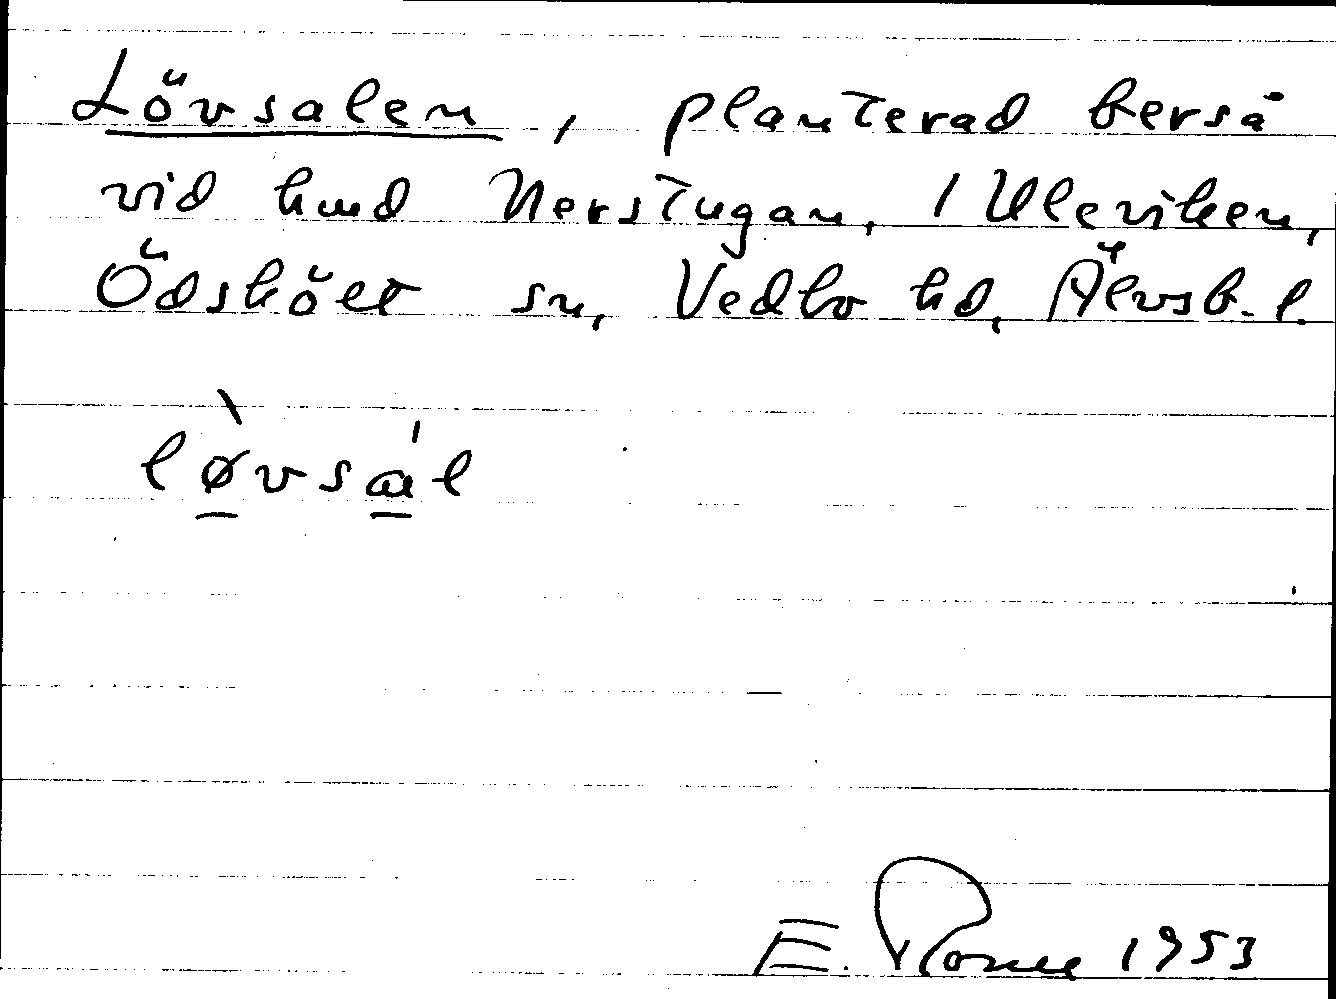 Lövsalen, planterad berså
vid hmd Nerstugan, 1 Uleviken,
Ödskölt sn, Vedbo hd, Älvsb. l.
lø̱̀vsa̱ɪ́l
E. 1953